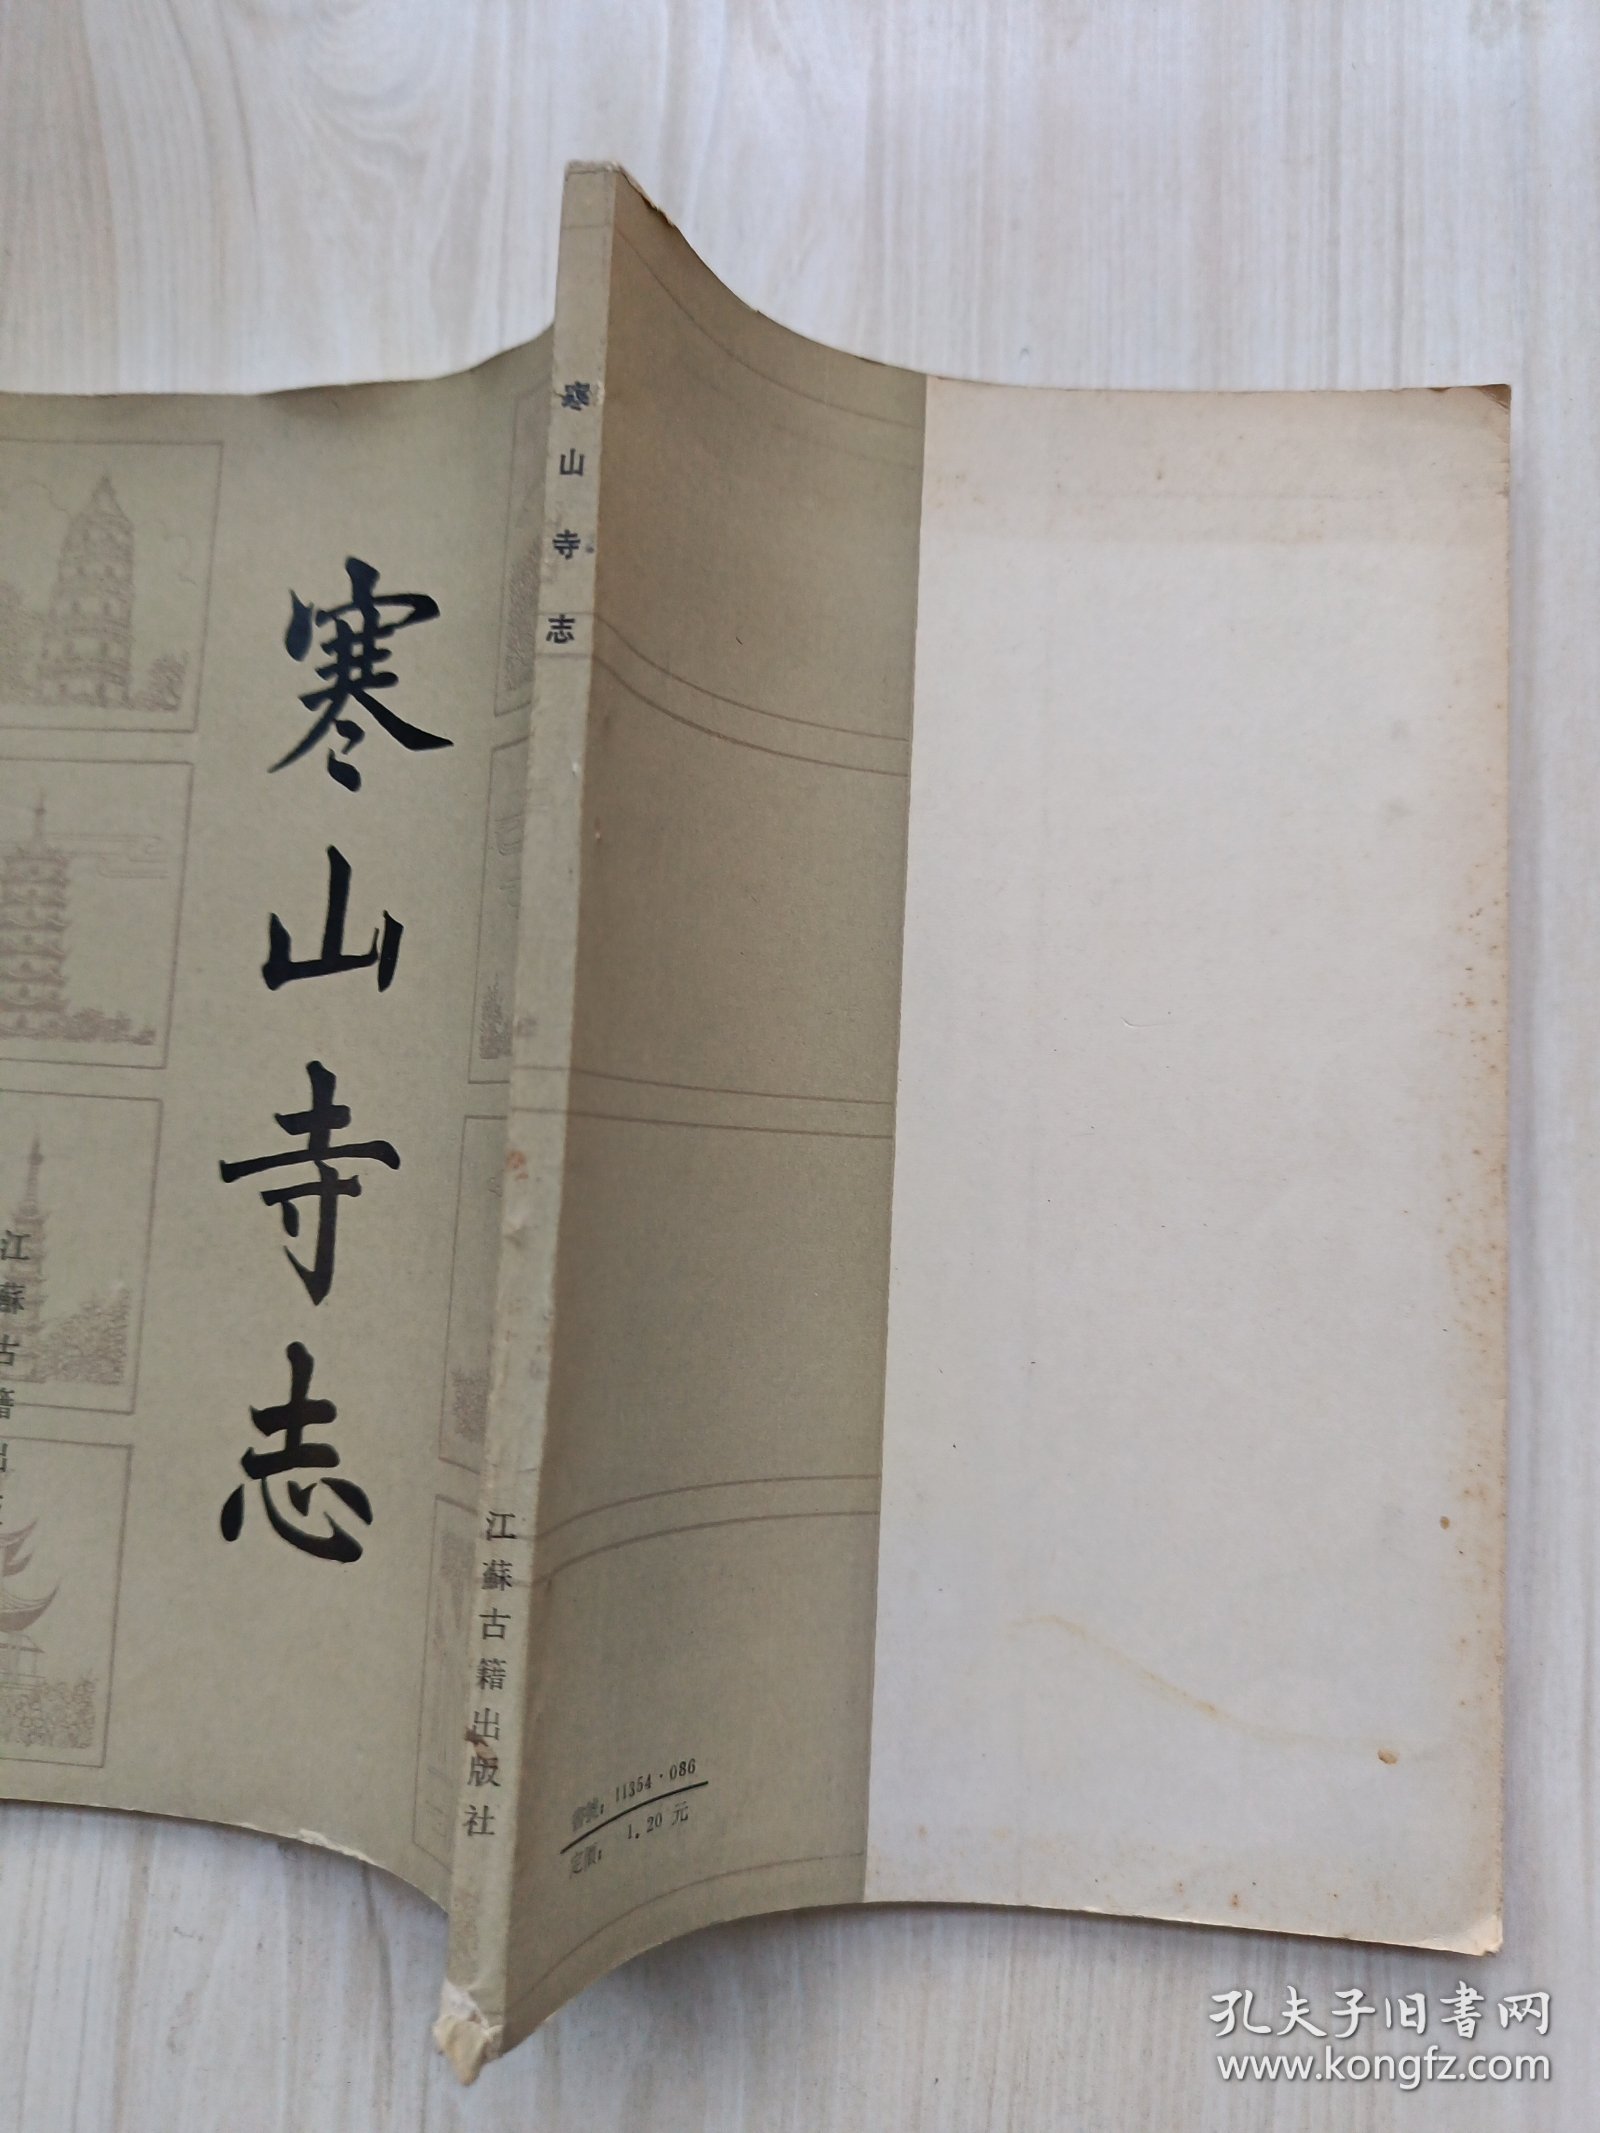 寒山寺志
江蘇古籍出
寒山寺志
江蘇古籍出版社
書號：11354·086
定價：1.20元
孔夫子旧書网
www.kongfz.com